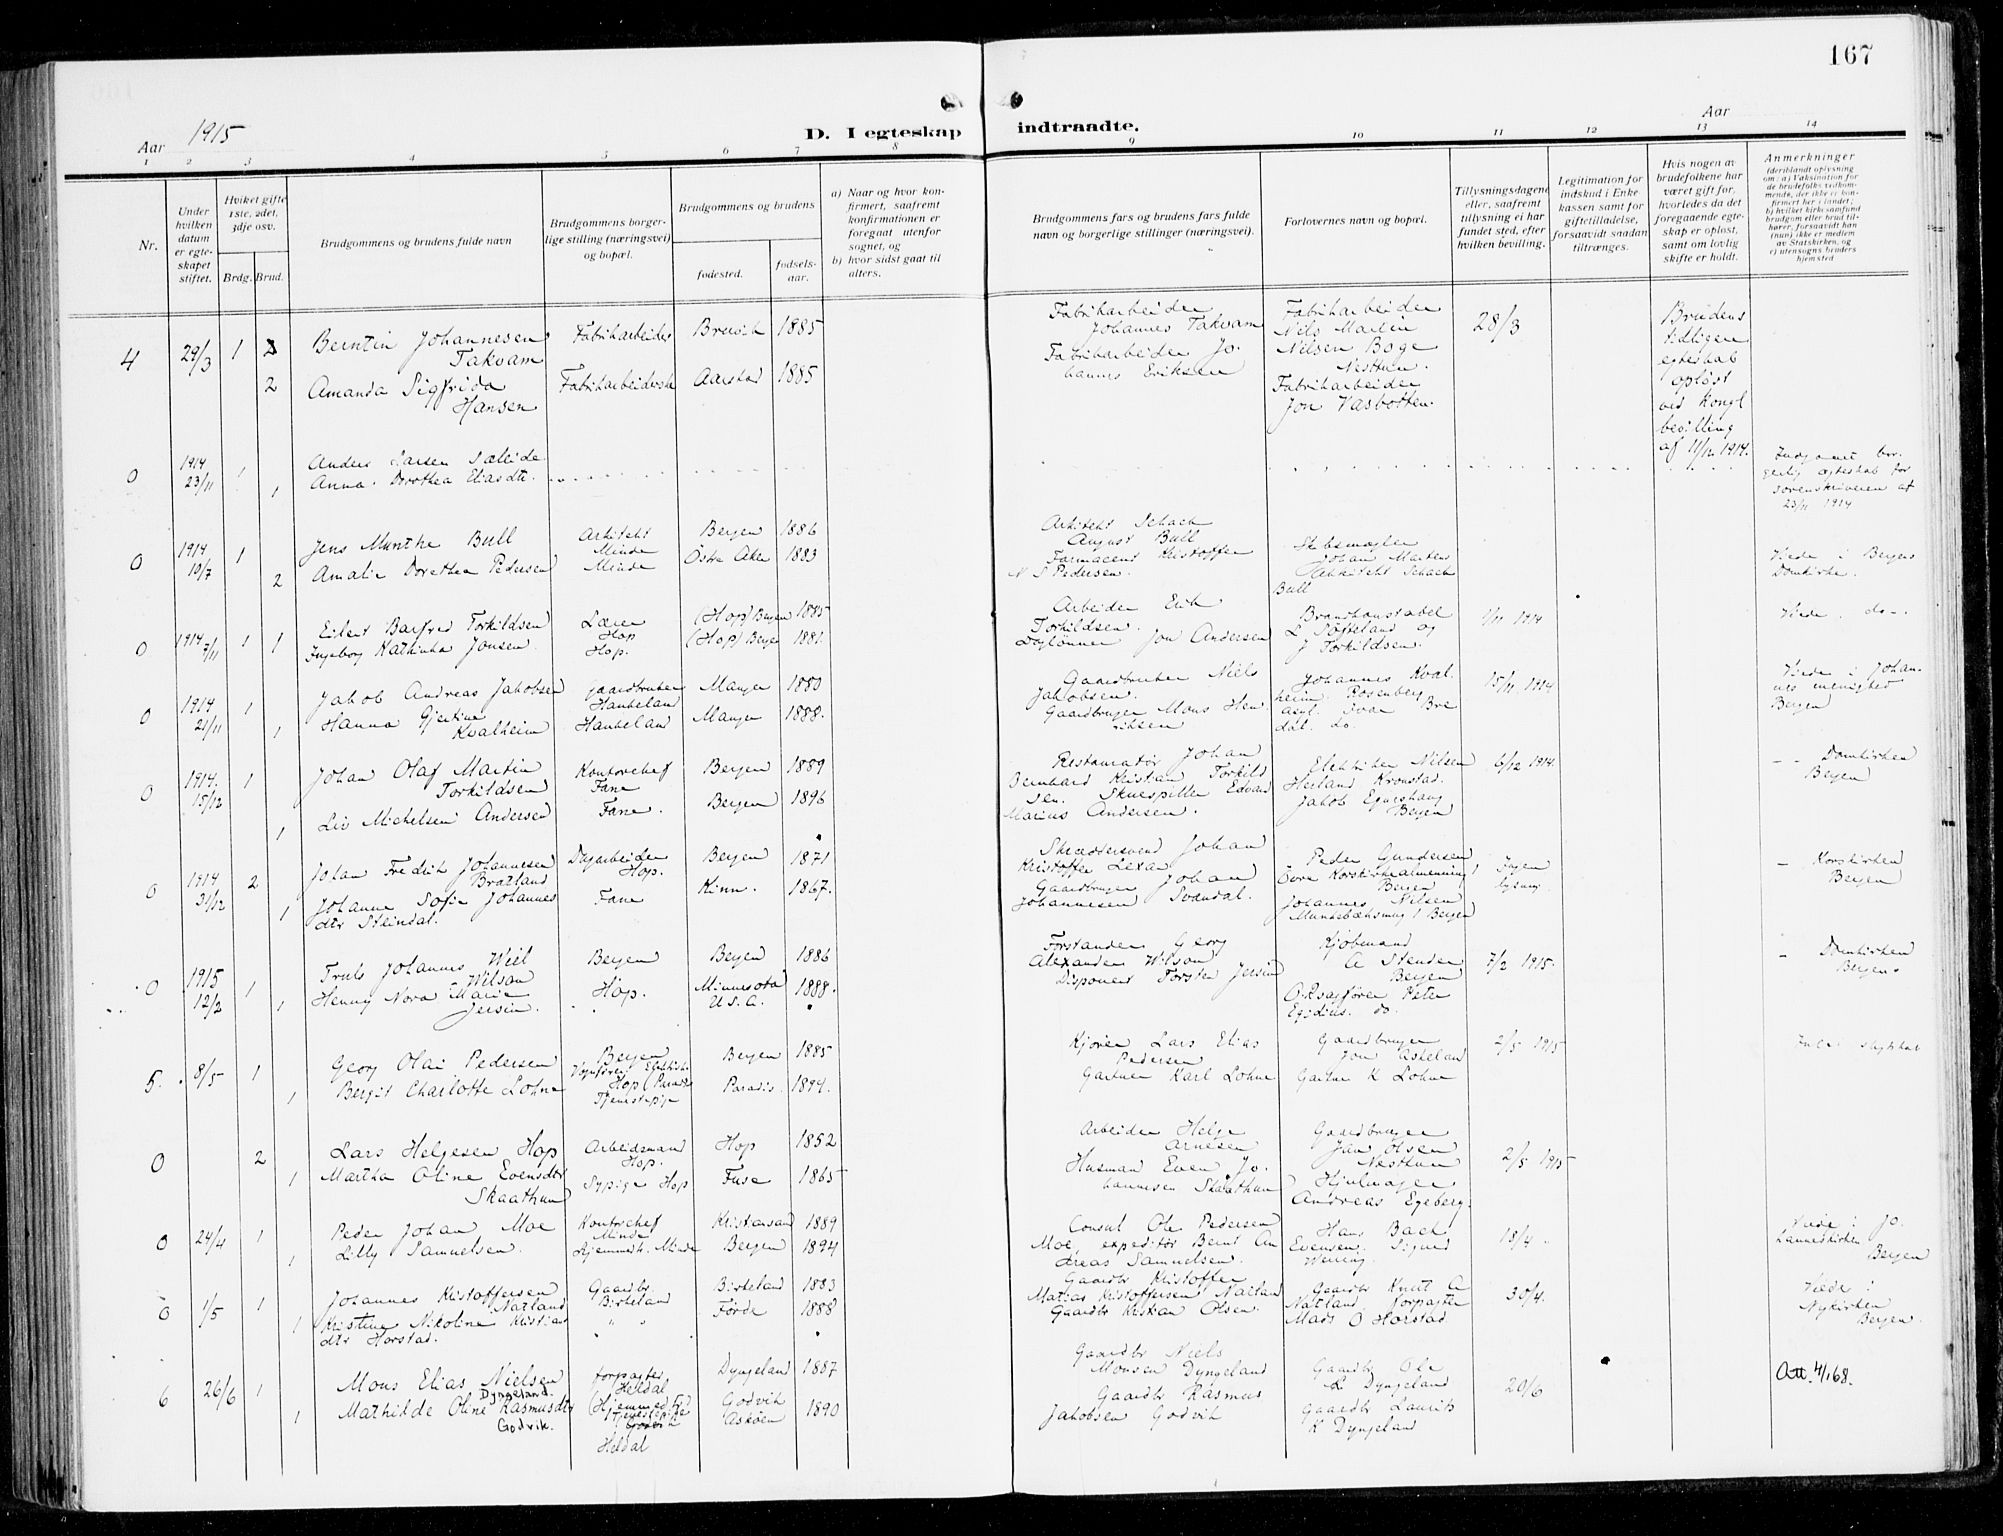 167
Aar 1915
D. I egteskap indtraadte.
Aar
1 2 3 4 5 6 7 8 9 10 11 12 13 14
Nr.
Under hvilken datum er egteskapet stiftet.
Hviket gifte 1ste, 2det, 3dje osv.
Brdg. Brud.
Brudgommens og brudens fulde navn
Brudgommens borgerlige stilling (næringsvei) og bopæl.
Brudgommens og brudens
fødested.
fødselsaar.
a) Naar og hvor konfirmert, saafremt konfirmationen er foregaat utenfor sognet, og
b) hvor sidst gaat til alters.
Brudgommens fars og brudens fars fulde navn og borgerlige stillinger (næringsvei).
Forlovernes navn og bopæl.
Tillysningsdagene eller, saafremt tillysning ei har fundet sted, efter hvilken bevilling.
Legitimation for indskud i Enkekassen samt for giftetilladelse, forsaavidt saadan tiltrænges.
Hvis nogen av brudefolkene har været gift før, hvorledes da det foregaaende egteskap er opløst, samt om lovlig skifte er holdt.
Anmerkninger
(deriblandt oplysning om: a) Vaksination for de brudefolks vedkommende, der ikke er konfirmert her i landet; b) hvilket kirkesamfund brudgom eller brud tilhører, forsaavidt han (hun) ikke er medlem av Statskirken, og c) utensogns bruders hjemsted
4 29/3 1 Berntin Johannesen Takvam Fabrikarbeider Bruvik 1885
2 Amanda Sigfrida Hansen Fabrikarbeiderske Aarstad 1885
Fabrikarbeider Johannes Takvam
Fabrikarbeider Johannes Eriksen
Fabrikarbeider Nils Martin Nilsen Boge Nesttun.
Fabrikarbeider Jon Vasbotten.
28/3
Brudens tidligere egteskab opløst ved Kongl bevilling af 11/12 1914.
0 1914 23/11 1 Anders Larsen Sæleide
1 Anna Dorothea Eliasdtr.
Indgaaet borgerlig ægteskab for sorenskriveren af 23/11 1914
0 1914 10/7 1 Jens Munthe Bull Arkitekt Minde Bergen 1886
2 Amalie Dorothea Pedersen Minde Østre Aker 1883
Arkitekt Schack August Bull
Farmaceut Kristoffer N S Pedersen.
Skibsmægler Johan Martens
Arkitekt Schack Bull
Viede i Bergens Domkirke.
0 1914 7/11 1 1 Eilert Barfred Torkildsen Lærer Hop (Hop) Bergen 1885
Ingeborg Kathinka Jonsen. Hop. (Hop) Bergen 1881.
Arbeider Erik Torkildsen.
Daglønner Jon Andersen
Brandkonstabel L. Søfteland og J Torkildsen.
1/11 1914
Viede do
0 1914 21/11 1 Jakob Andreas Jakobsen Gaardbruker Haukeland Manger 1880
1 Hanna Gjertine Kvalheim Haukeland Manger 1888.
Gaardbruker Niels Jakobsen.
Gaardbruger Mons Henriksen
Johannes Kvalheim. Rosenberg asyl. Ivar Bredal. do.
15/11 1914
Viede i Johannes menighed Bergen
0 1914. 15/12 1 Johan Olaf Martin Torkildsen Kontorchef Fane Bergen 1889
1 Liv Michelsen Andersen Fane. Bergen 1896
Restauratør Johan Bernhard Kristian Torkildsen.
Skuespiller Edvard Marius Andersen.
Elektriker Nilsen Herland Kronstad.
Jakob Egneshaug Bergen
6/12 1914.
Domkirken Bergen
0 1914 31/12 2 Johan Fredrik Johannesen Bratland Dagarbeider Hop. Bergen 1871
1 Johanne Sofie Johannesdtr Steindal. Fane Kinn. 1867.
Skræddersvend Johan Kristoffer Lexa
Gaardbruger Johan Johannesen Svandal.
Peder Gundersen Øvre Korskirkealmenning Bergen
Johannes Nilsen Munkebæksmug 1 Bergen
Ingen lysning
Korskirken Bergen
0 1915 12/2 1 Truls Johannes Wiel Wilson Bergen Bergen 1886
1 Henny Nora Marie Jersin. Hop. Minnesota U.S.A. 1888.
Forstander Georg Alexander Wilson
Disponent Torsten Jersin
Kjøbmand A Stender Bergen
O.R.sagfører Peter Egidius. do.
7/2 1915.
Domkirken Bergen
5. 8/5 1 Georg Olai Pedersen Bergen Vognfører Elektrisk Bergen 1885
1 Bergit Charlotte Lohne Hop (Paradis Tjenestepige Paradis 1894.
Kjører Lars Elias Pedersen
Gartner Karl Lohne
Gaardbruger Jon Askeland
Gartner K Lohne
2/5 1915
0 2 Lars Helgesen Hop Arbeidsmand Hop. Hop 1852
1 Martha Oline Evensdtr Skaathun Sypige Hop Fuse 1865
Arbeider Helge Arnesen
Husmand Even Johannesen Skaathun
Gaardbruger Jan Olsen Nesttun
Hjulmager Andreas Egeberg.
2/5 1915
0 24/4 1 Peder Johan Moe Kontorchef Minde Kristansand 1889
1 Lilly Samuelsen. Hjemmeh. Minde Bergen 1894
Consul Ole Pedersen Moe, expeditør Bernt Andreas Samuelsen.
Hans Bach Evensen. Sigurd
18/4.
Viede i Johanneskirken Bergen
0 1/5 1 Johannes Kristoffersen Natland Gaardbr Birkeland Birkeland 1883
1 Kristine Nikoline Kristiandtr Horstad. " " Førde 1888
Gaardbr Kristoffer Matias Kristoffersen Natland
Gaardbr Kristian Olsen.
Gaardbr Knut A Natland forpagter Mads O Horstad
30/4.
Viede i Nykirken Bergen.
6 26/6 1 Mons Elias Nielsen Dyngeland. forpagter Heldal Dyngeland 1887
1 Mathilde Oline Rasmusdtr Godvik. Tjenestepige Godvik Heldal Godvik Askøen 1890
Gaardbr Niels Monsen Dyngeland
Gaardbr Rasmus Jakobsen Godvik
Gaardbr Ole K Dyngeland
Gaardbr Laurits K Dyngeland
20/6
Att. 4/1 68.